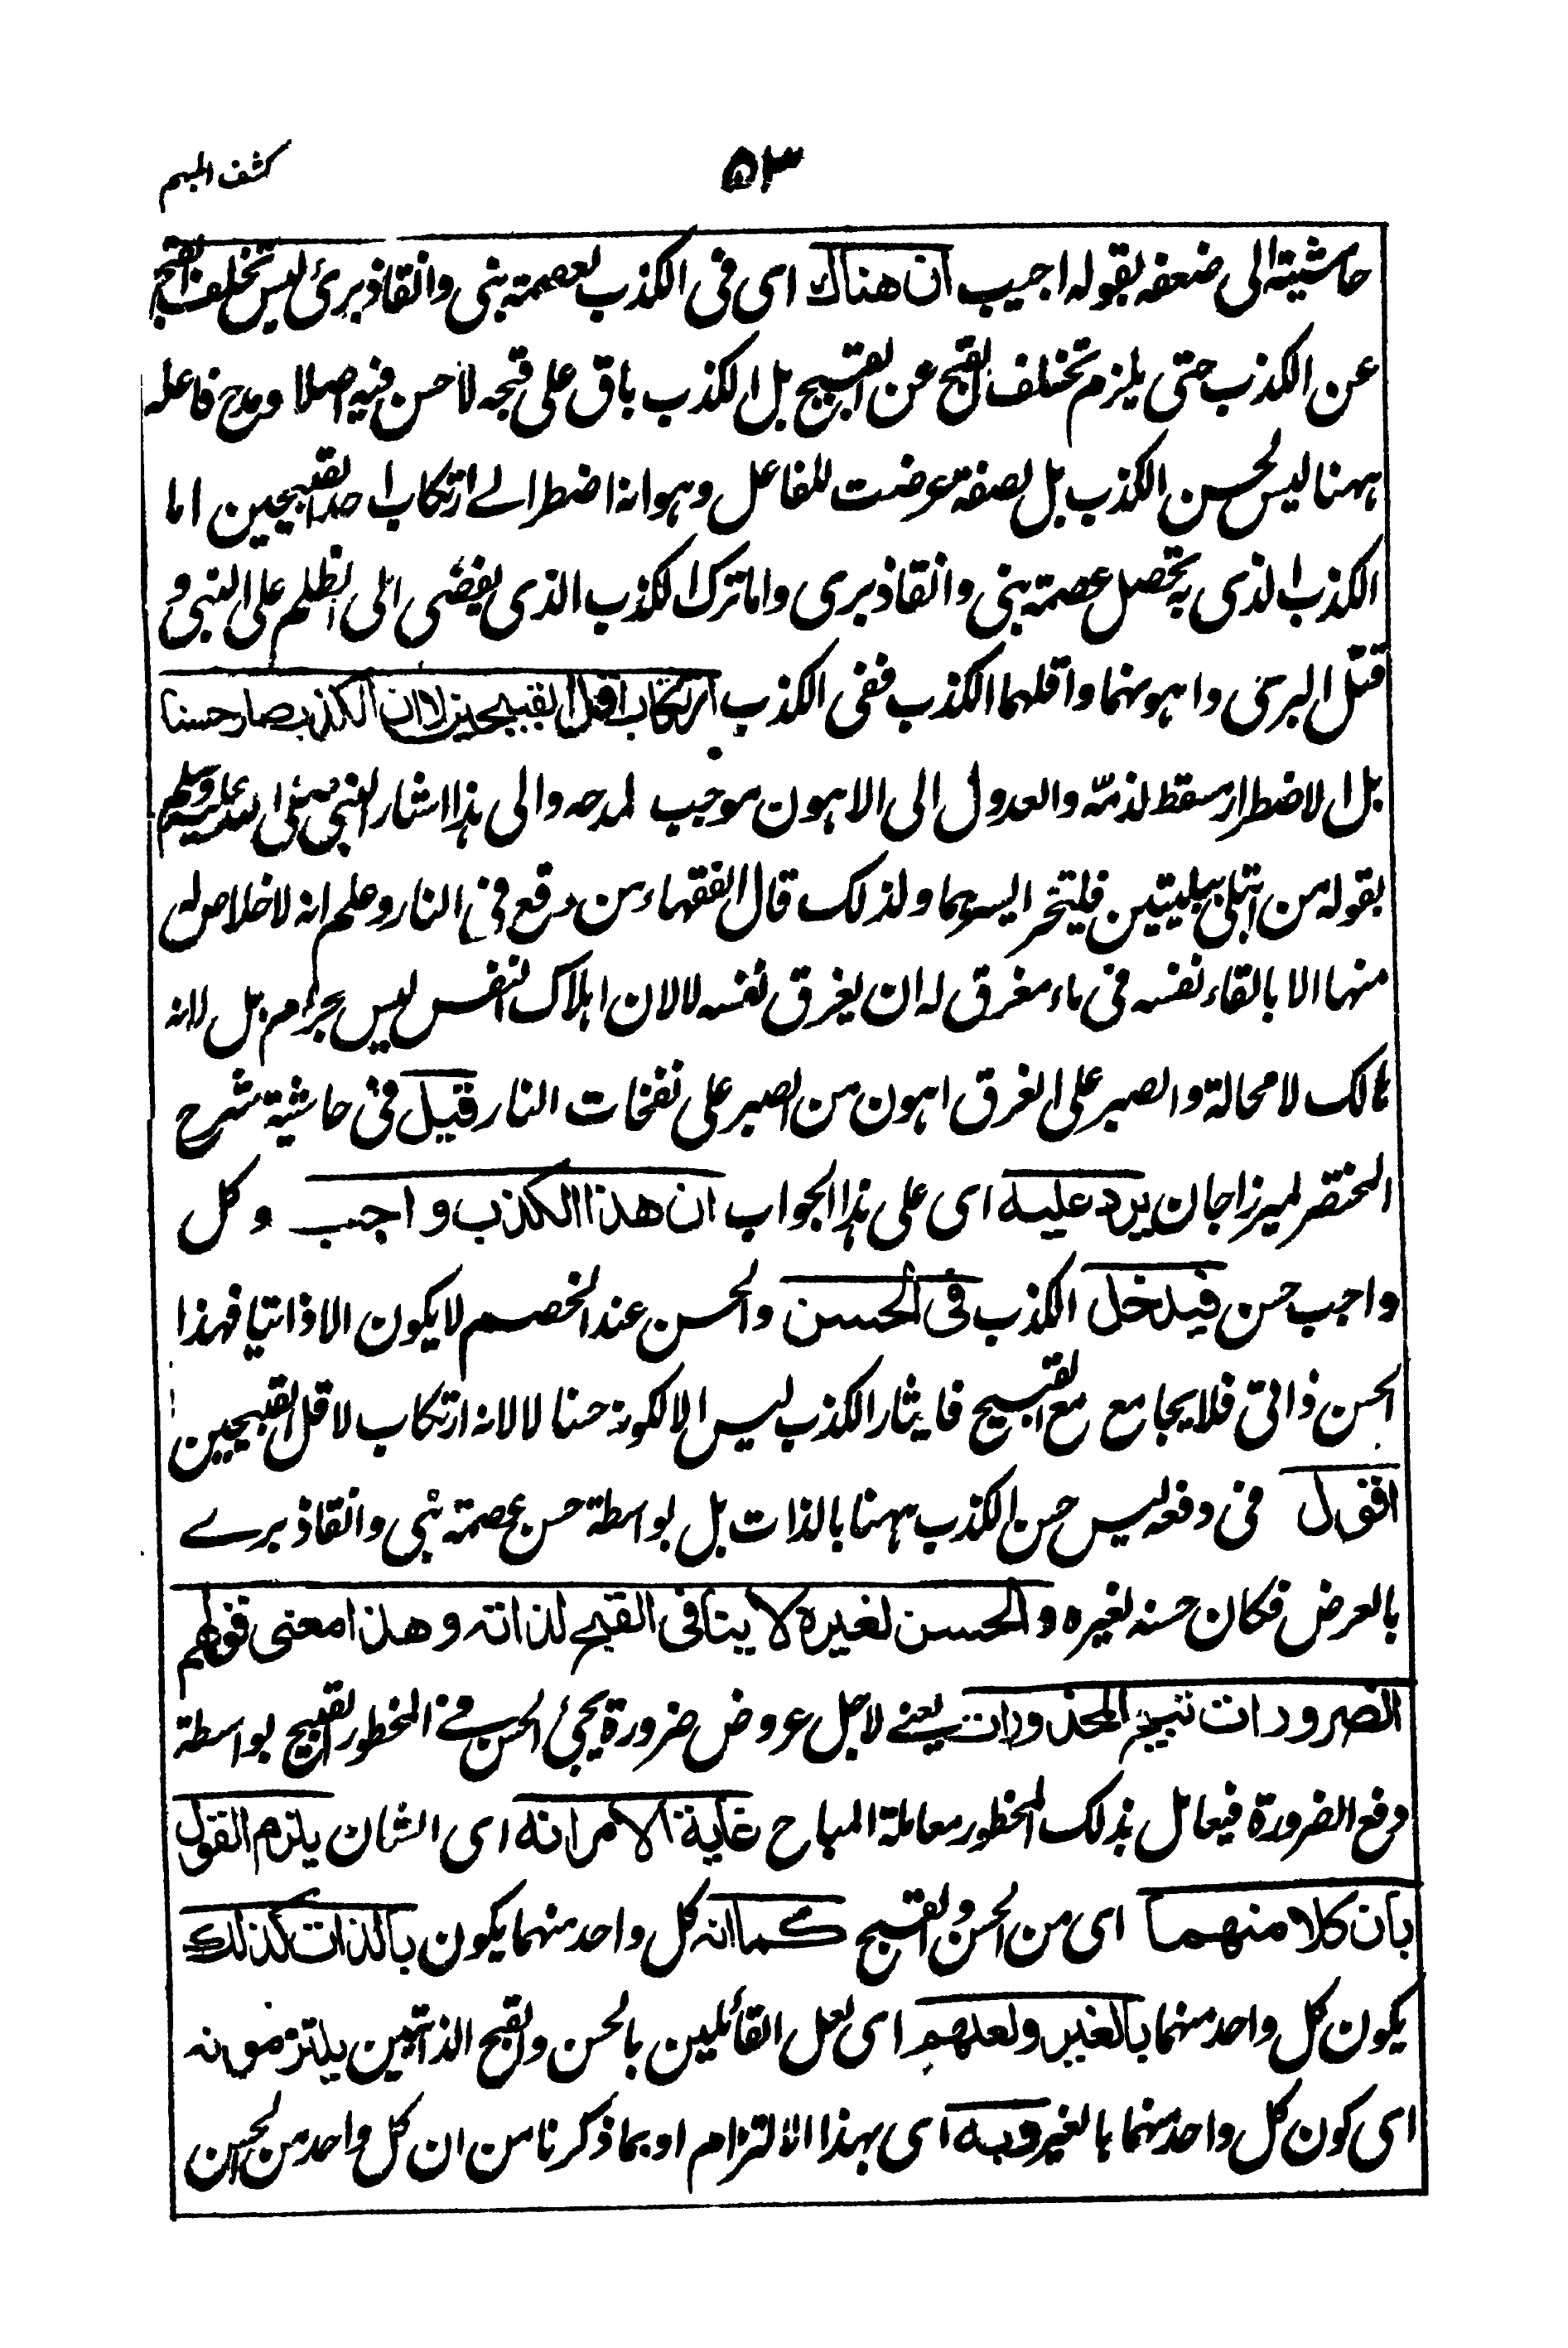 كشف المبهم
٥٣
حاشيته الى ضعفه بقوله اجيب ان هناك اى فى الكذب لعصمة نبى وانقاذ برئ ليس تخلف القبح
عن الكذب حتى يلزم تخلف القبح عن القبيح بل الكذب باق على قبحه لا حسن فيه اصلا ومدح فاعله
ههنا ليس لحسن الكذب بل لصفة عرضت للفاعل وهو انه اضطر الے ارتكاب احد القبيحين اما
الكذب الذى به تحصل عصمة نبى وانقاذ برى واما ترك الكذب الذى يفضى الى الظلم على النبى و
قتل البرئ واهونهما واقلهما الكذب ففى الكذب ارتكاب اقل القبيحين لا ان الكذب صار حسنا
بل الاضطرار مسقط لذمته والعدول الى الاهون موجب لمدحه والى هذا اشار النبى صلى الله عليه وسلم
بقوله من ابتلى ببليتين فليتخير ايسرهما ولذلك قال الفقهاء من وقع فى النار وعلم انه لا خلاص له
منها الا بالقاء نفسه فى ماء مغرق له ان يغرق نفسه لا لان اهلاك النفس ليس بحرام بل لانه
هالك لا محالة والصبر على الغرق اهون من الصبر على نفخات النار قيل فى حاشية شرح
المختصر لميرزا جان يرد عليه اى على هذا الجواب ان هذا الكذب واجب وكل
واجب حسن فيدخل الكذب فى الحسن والحسن عند الخصم لا يكون الا ذاتيا فهذا
الحسن ذاتى فلا يجامع مع القبيح فايثار الكذب ليس الا لكونه حسنا لا لانه ارتكاب لاقل القبيحين
اقول فى دفعه ليس حسن الكذب ههنا بالذات بل بواسطة حسن عصمة نبى وانقاذ برے
بالعرض فكان حسنه لغيره والحسن لغيره لا ينافى القبح لذاته وهذا معنى قولهم
الضرورات تبيح المحذورات يعنے لاجل عروض ضرورة يجئ الحسن فے المحظور القبيح بواسطة
دفع الضرورة فيعامل بذلك المحظور معاملة المباح غاية الامر انه اى الشان يلزم القول
بان كلا منهما اى من الحسن والقبح كما انه كل واحد منهما يكون بالذات كذلك
يكون كل واحد منهما بالغير ولعلهم اى لعل القائلين بالحسن والقبح الذاتيين يلتزمونه
اى كون كل واحد منهما بالغير وبه اى بهذا الالتزام او بما ذكرنا من ان كل واحد من الحسن